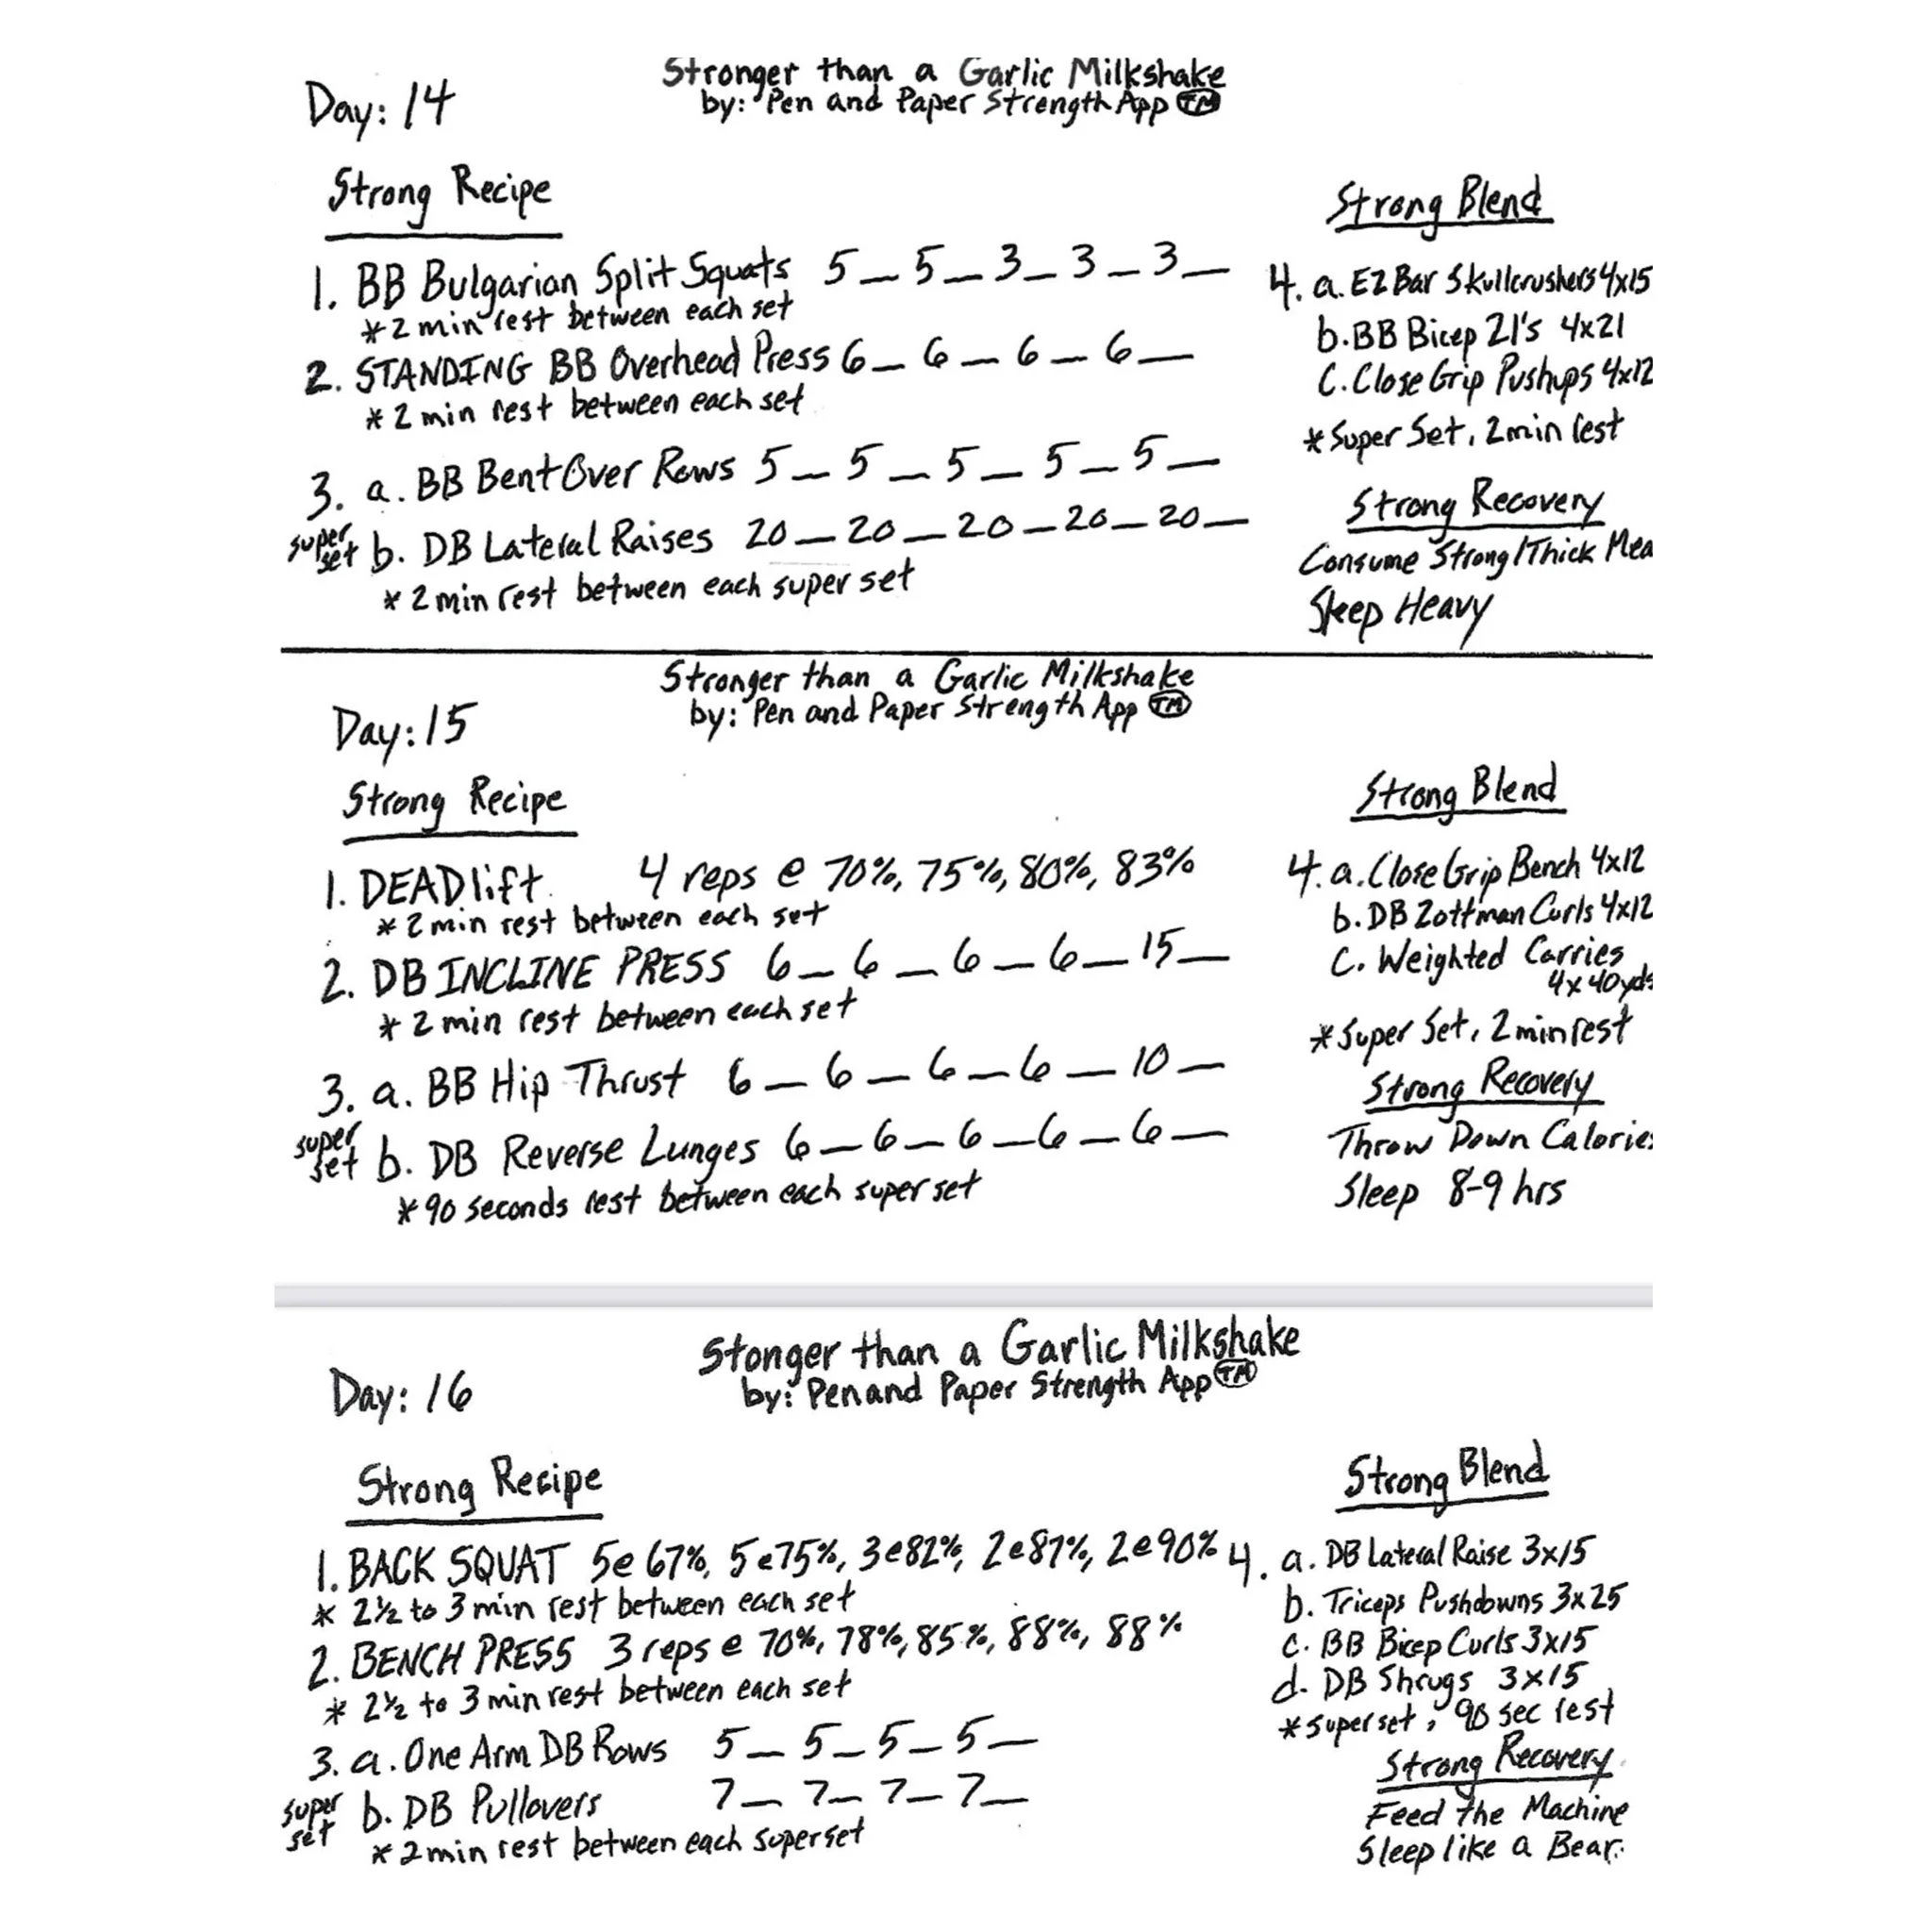 Stronger than a Garlic Milkshake
by: Pen and Paper Strength App TM
Day: 14
Strong Recipe
1. BB Bulgarian Split Squats 5_ 5_ 3_ 3_ 3_
*2 min rest between each set
2. STANDING BB Overhead Press 6_ 6_ 6_ 6_
*2 min rest between each set
3. a. BB Bent Over Rows 5_ 5_ 5_ 5_ 5_
super set b. DB Lateral Raises 20_ 20_ 20_ 20_ 20_
*2 min rest between each super set
Strong Blend
4. a. EZ Bar Skullcrushers 4x15
b. BB Bicep 21's 4x21
C. Close Grip Pushups 4x12
*Super Set, 2 min rest
Strong Recovery
Consume Strong/Thick Mea
Sleep Heavy
Stronger than a Garlic Milkshake
by: Pen and Paper Strength App TM
Day: 15
Strong Recipe
1. DEADlift 4 reps @ 70%, 75%, 80%, 83%
*2 min rest between each set
2. DB INCLINE PRESS 6_ 6_ 6_ 6_ 15_
*2 min rest between each set
3. a. BB Hip Thrust 6_ 6_ 6_ 6_ 10_
super set b. DB Reverse Lunges 6_ 6_ 6_ 6_ 6_
*90 seconds rest between each super set
Strong Blend
4. a. Close Grip Bench 4x12
b. DB Zottman Curls 4x12
C. Weighted Carries
4x40yds
*Super Set, 2 min rest
Strong Recovery
Throw Down Calories
Sleep 8-9 hrs
Stonger than a Garlic Milkshake
by: Pen and Paper Strength App TM
Day: 16
Strong Recipe
1. BACK SQUAT 5@67%, 5@75%, 3@82%, 2@87%, 2@90%
* 2½ to 3 min rest between each set
2. BENCH PRESS 3 reps @ 70%, 78%, 85%, 88%, 88%
* 2½ to 3 min rest between each set
3. a. One Arm DB Rows 5_ 5_ 5_ 5_
super set b. DB Pullovers 7_ 7_ 7_ 7_
*2 min rest between each superset
Strong Blend
4. a. DB Lateral Raise 3x15
b. Triceps Pushdowns 3x25
c. BB Bicep Curls 3x15
d. DB Shrugs 3x15
*superset, 90 sec rest
Strong Recovery
Feed the Machine
Sleep like a Bear.